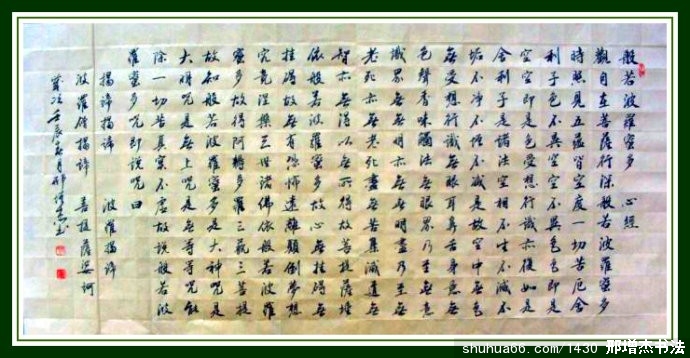 般若波羅蜜多 心經
觀自在菩薩行深般若波羅蜜多
時照見五蘊皆空度一切苦厄舍
利子色不異空空不異色色即是
空空即是色受想行識亦復如是
舍利子是諸法空相不生不滅不
垢不淨不增不減是故空中無色
無受想行識無眼耳鼻舌身意無
色聲香味觸法無眼界乃至無意
識界無無明亦無無明盡乃至無
老死亦無老死盡無苦集滅道無
智亦無得以無所得故菩提薩埵
依般若波羅蜜多故心無挂礙無
挂礙故無有恐怖遠離顛倒夢想
究竟涅槃三世諸佛依般若波羅
蜜多故得阿耨多羅三藐三菩提
故知般若波羅蜜多是大神咒是
大明咒是無上咒是無等等咒能
除一切苦真實不虛故說般若波
羅蜜多咒即說咒曰
揭諦揭諦 波羅揭諦
波羅僧揭諦 菩提薩婆訶
歲次壬辰 月邢增杰書
shuhua66.com/1430 邢增杰书法